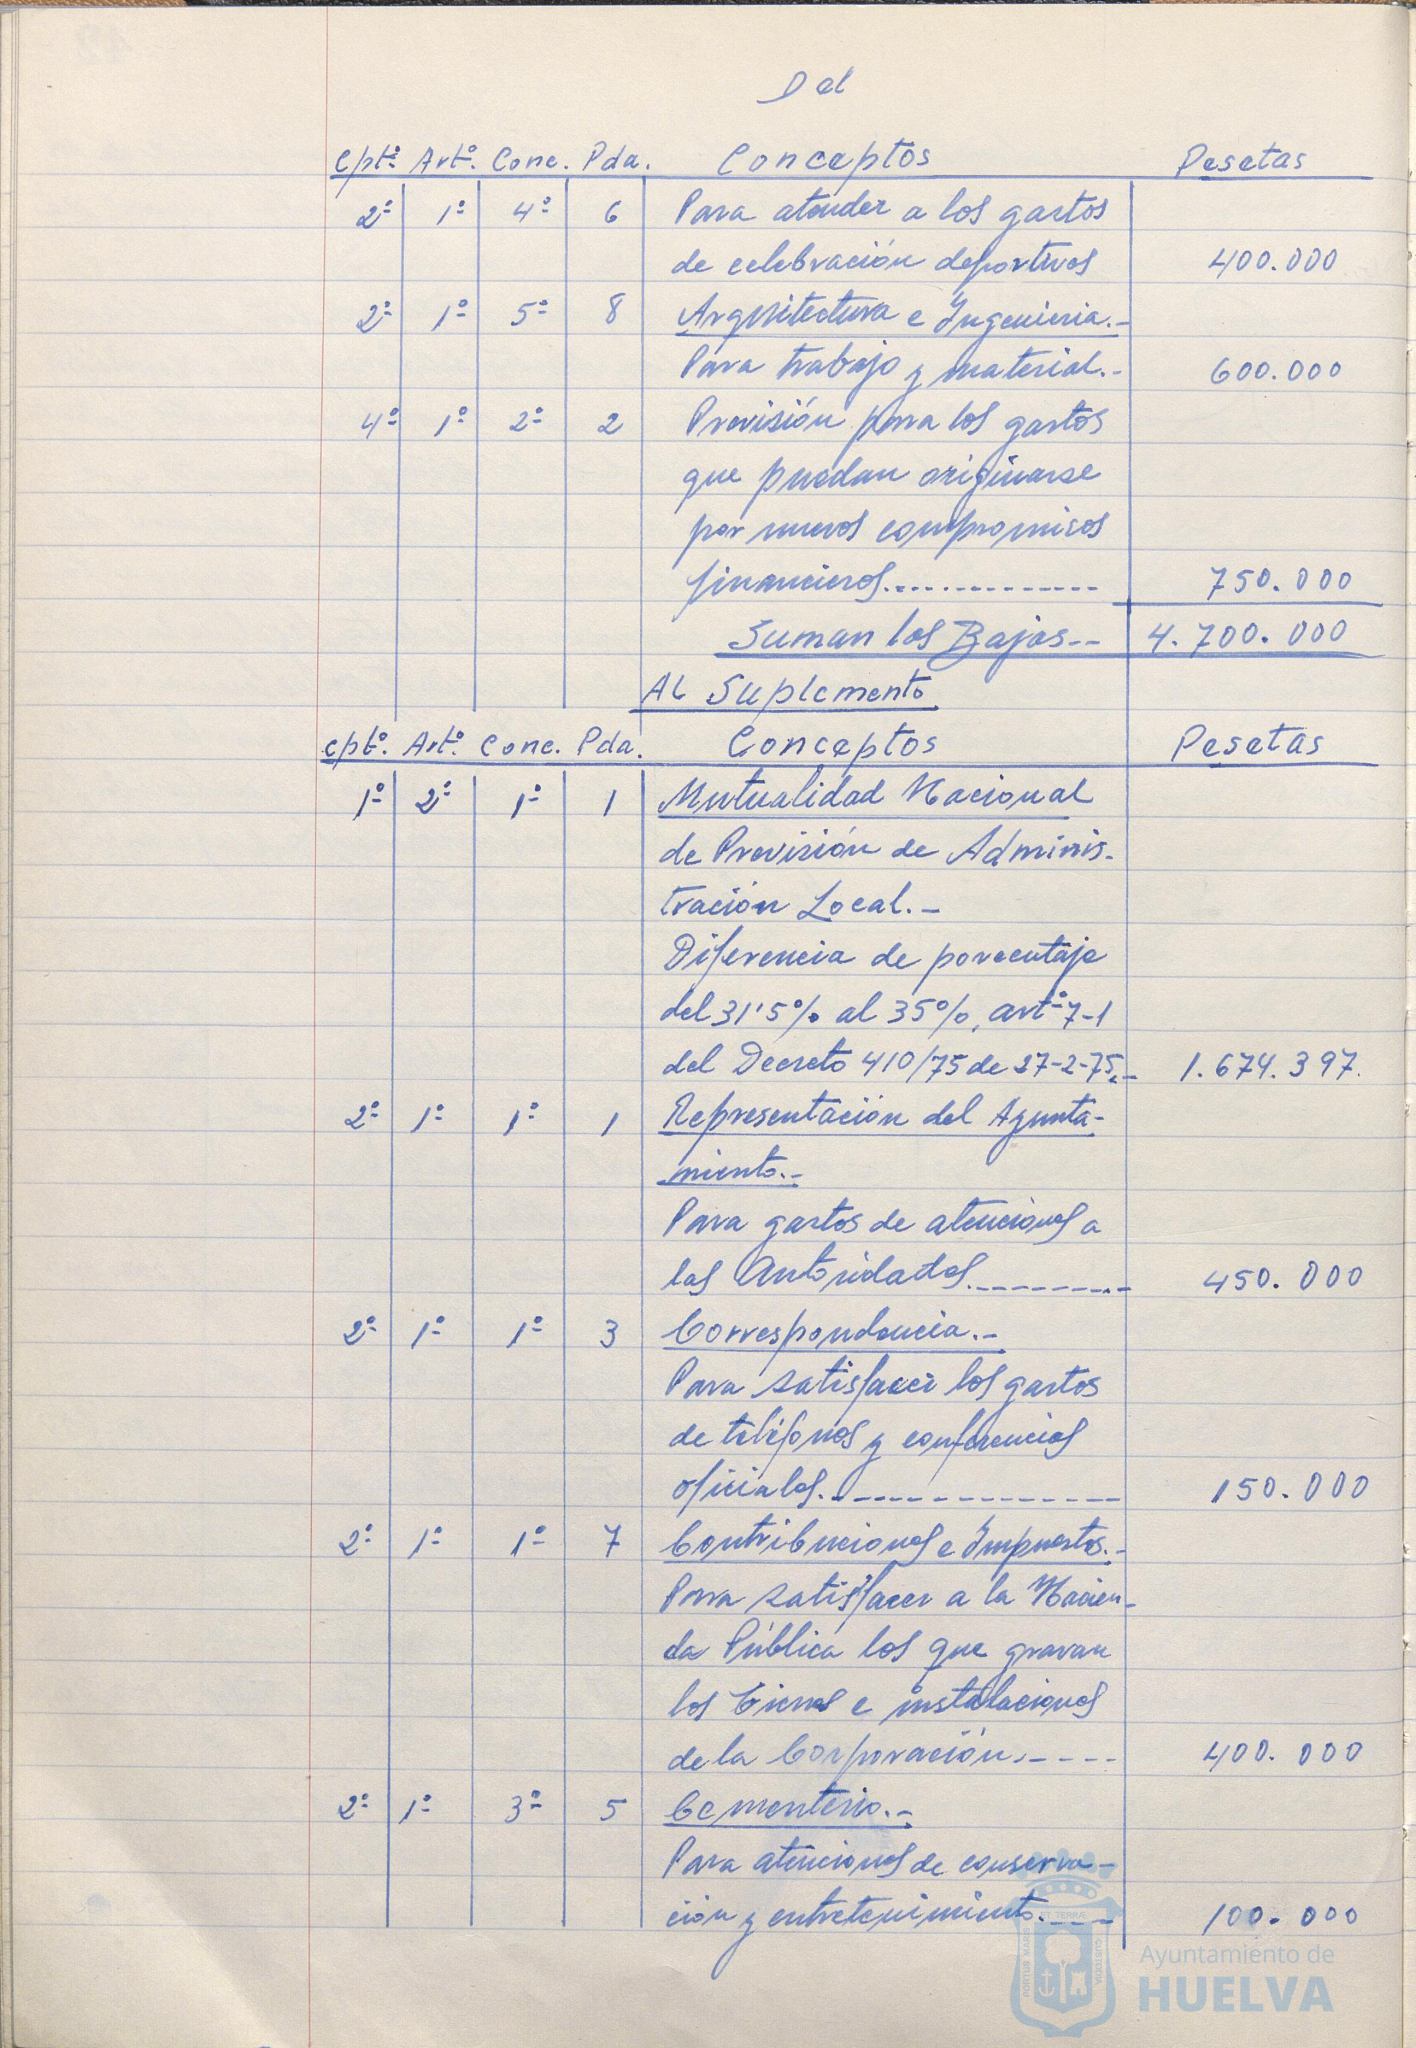 Del
Cptº. Artº. Conc. Pda. Conceptos Pesetas
2º 1º 4º 6 Para atender a los gastos
de celebración deportivos 400.000
2º 1º 5º 8 Arquitectura e Ingenieria.-
Para trabajo y material.- 600.000
4º 1º 2º 2 Previsión para los gastos
que puedan originarse
por nuevos compromisos
financieros.............. 750.000
Suman las Bajas-- 4.700.000
AL Suplemento
Cptº. Artº. Conc. Pda. Conceptos Pesetas
1º 2º 1º 1 Mutualidad Nacional
de Previsión de Adminis-
tración Local.-
Diferencia de porcentaje
del 31'5% al 35%, artº 7-1
del Decreto 410/75 de 27-2-75.- 1.674.397.
2º 1º 1º 1 Representación del Ayunta-
miento.-
Para gastos de atenciones a
las Autoridades.--------- 450.000
2º 1º 1º 3 Correspondencia.-
Para satisfacer los gastos
de teléfonos y conferencias
oficiales.-------------- 150.000
2º 1º 1º 7 Contribuciones e Impuestos.-
Para satisfacer a la Hacien-
da Pública los que gravan
los bienes e instalaciones
de la Corporación.---- 400.000
2º 1º 3º 5 Cementerio.-
Para atenciones de conserva-
ción y entretenimiento.---- 100.000
PORTUS MARIS
ET TERRAE
CUSTODIA
Ayuntamiento de
HUELVA